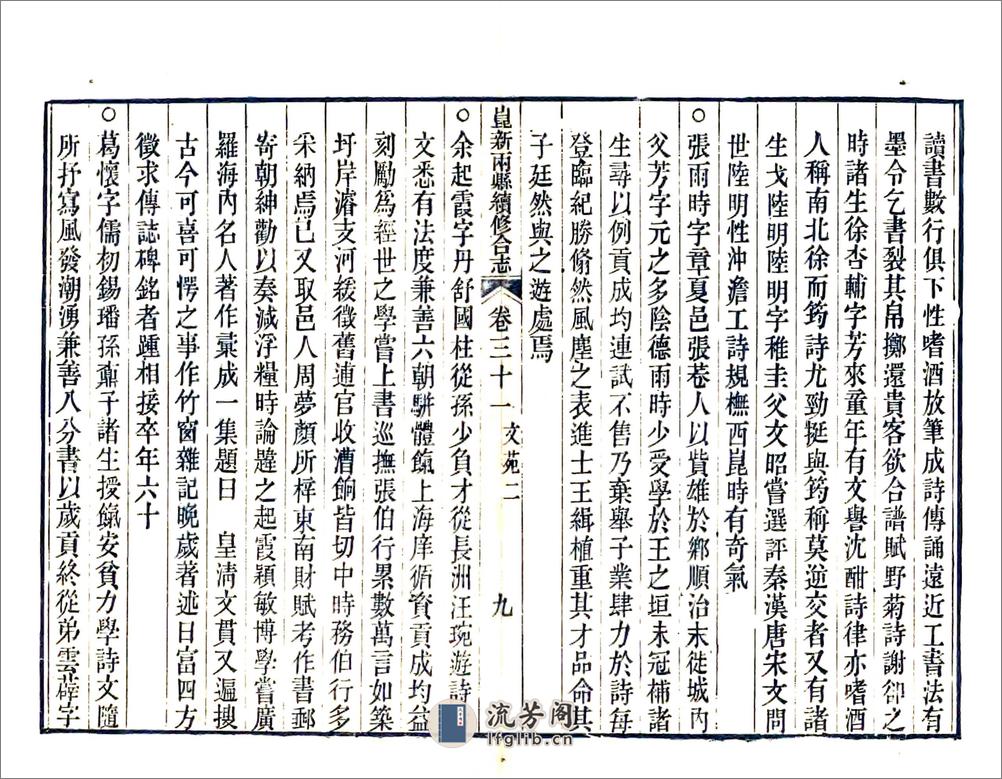 讀書數行俱下性嗜酒放筆成詩傳誦遠近工書法有
墨令乞書裂其帛擲還貴客欲合譜賦野菊詩謝卻之
時諸生徐杏輔字芳來童年有文譽沈酣詩律亦嗜酒
人稱南北徐而筠詩尤勁挺與筠稱莫逆交者又有諸
生戈陸明陸明字稚圭父文昭嘗選評秦漢唐宋文問
世陸明性沖澹工詩規橅西崑時有奇氣
○張雨時字章夏邑張巷人以貲雄於鄉順治末徙城內
父芳字元之多陰德雨時少受學於王之垣未冠補諸
生尋以例貢成均連試不售乃棄舉子業肆力於詩每
登臨紀勝翛然風塵之表進士王緝植重其才品命其
子廷然與之遊處焉
崑新兩縣續修合志 卷三十一 文苑二 九
○余起霞字丹舒國柱從孫少負才從長洲汪琬遊詩
文悉有法度兼善六朝駢體餼上海庠循資貢成均益
刻勵為經世之學嘗上書巡撫張伯行累數萬言如築
圩岸濬支河緩徵舊逋官收漕餉皆切中時務伯行多
采納焉已又取邑人周夢顏所梓東南財賦考作書郵
寄朝紳勸以奏減浮糧時論韙之起霞穎敏博學嘗廣
羅海內名人著作彙成一集題曰 皇清文貫又遍搜
古今可喜可愕之事作竹窗雜記晚歲著述日富四方
徵求傳誌碑銘者踵相接卒年六十
○葛懷字儒礽錫璠孫鼐子諸生授餼安貧力學詩文隨
所抒寫風發潮湧兼善八分書以歲貢終從弟雲薜字
流芳阁
lfglib.cn